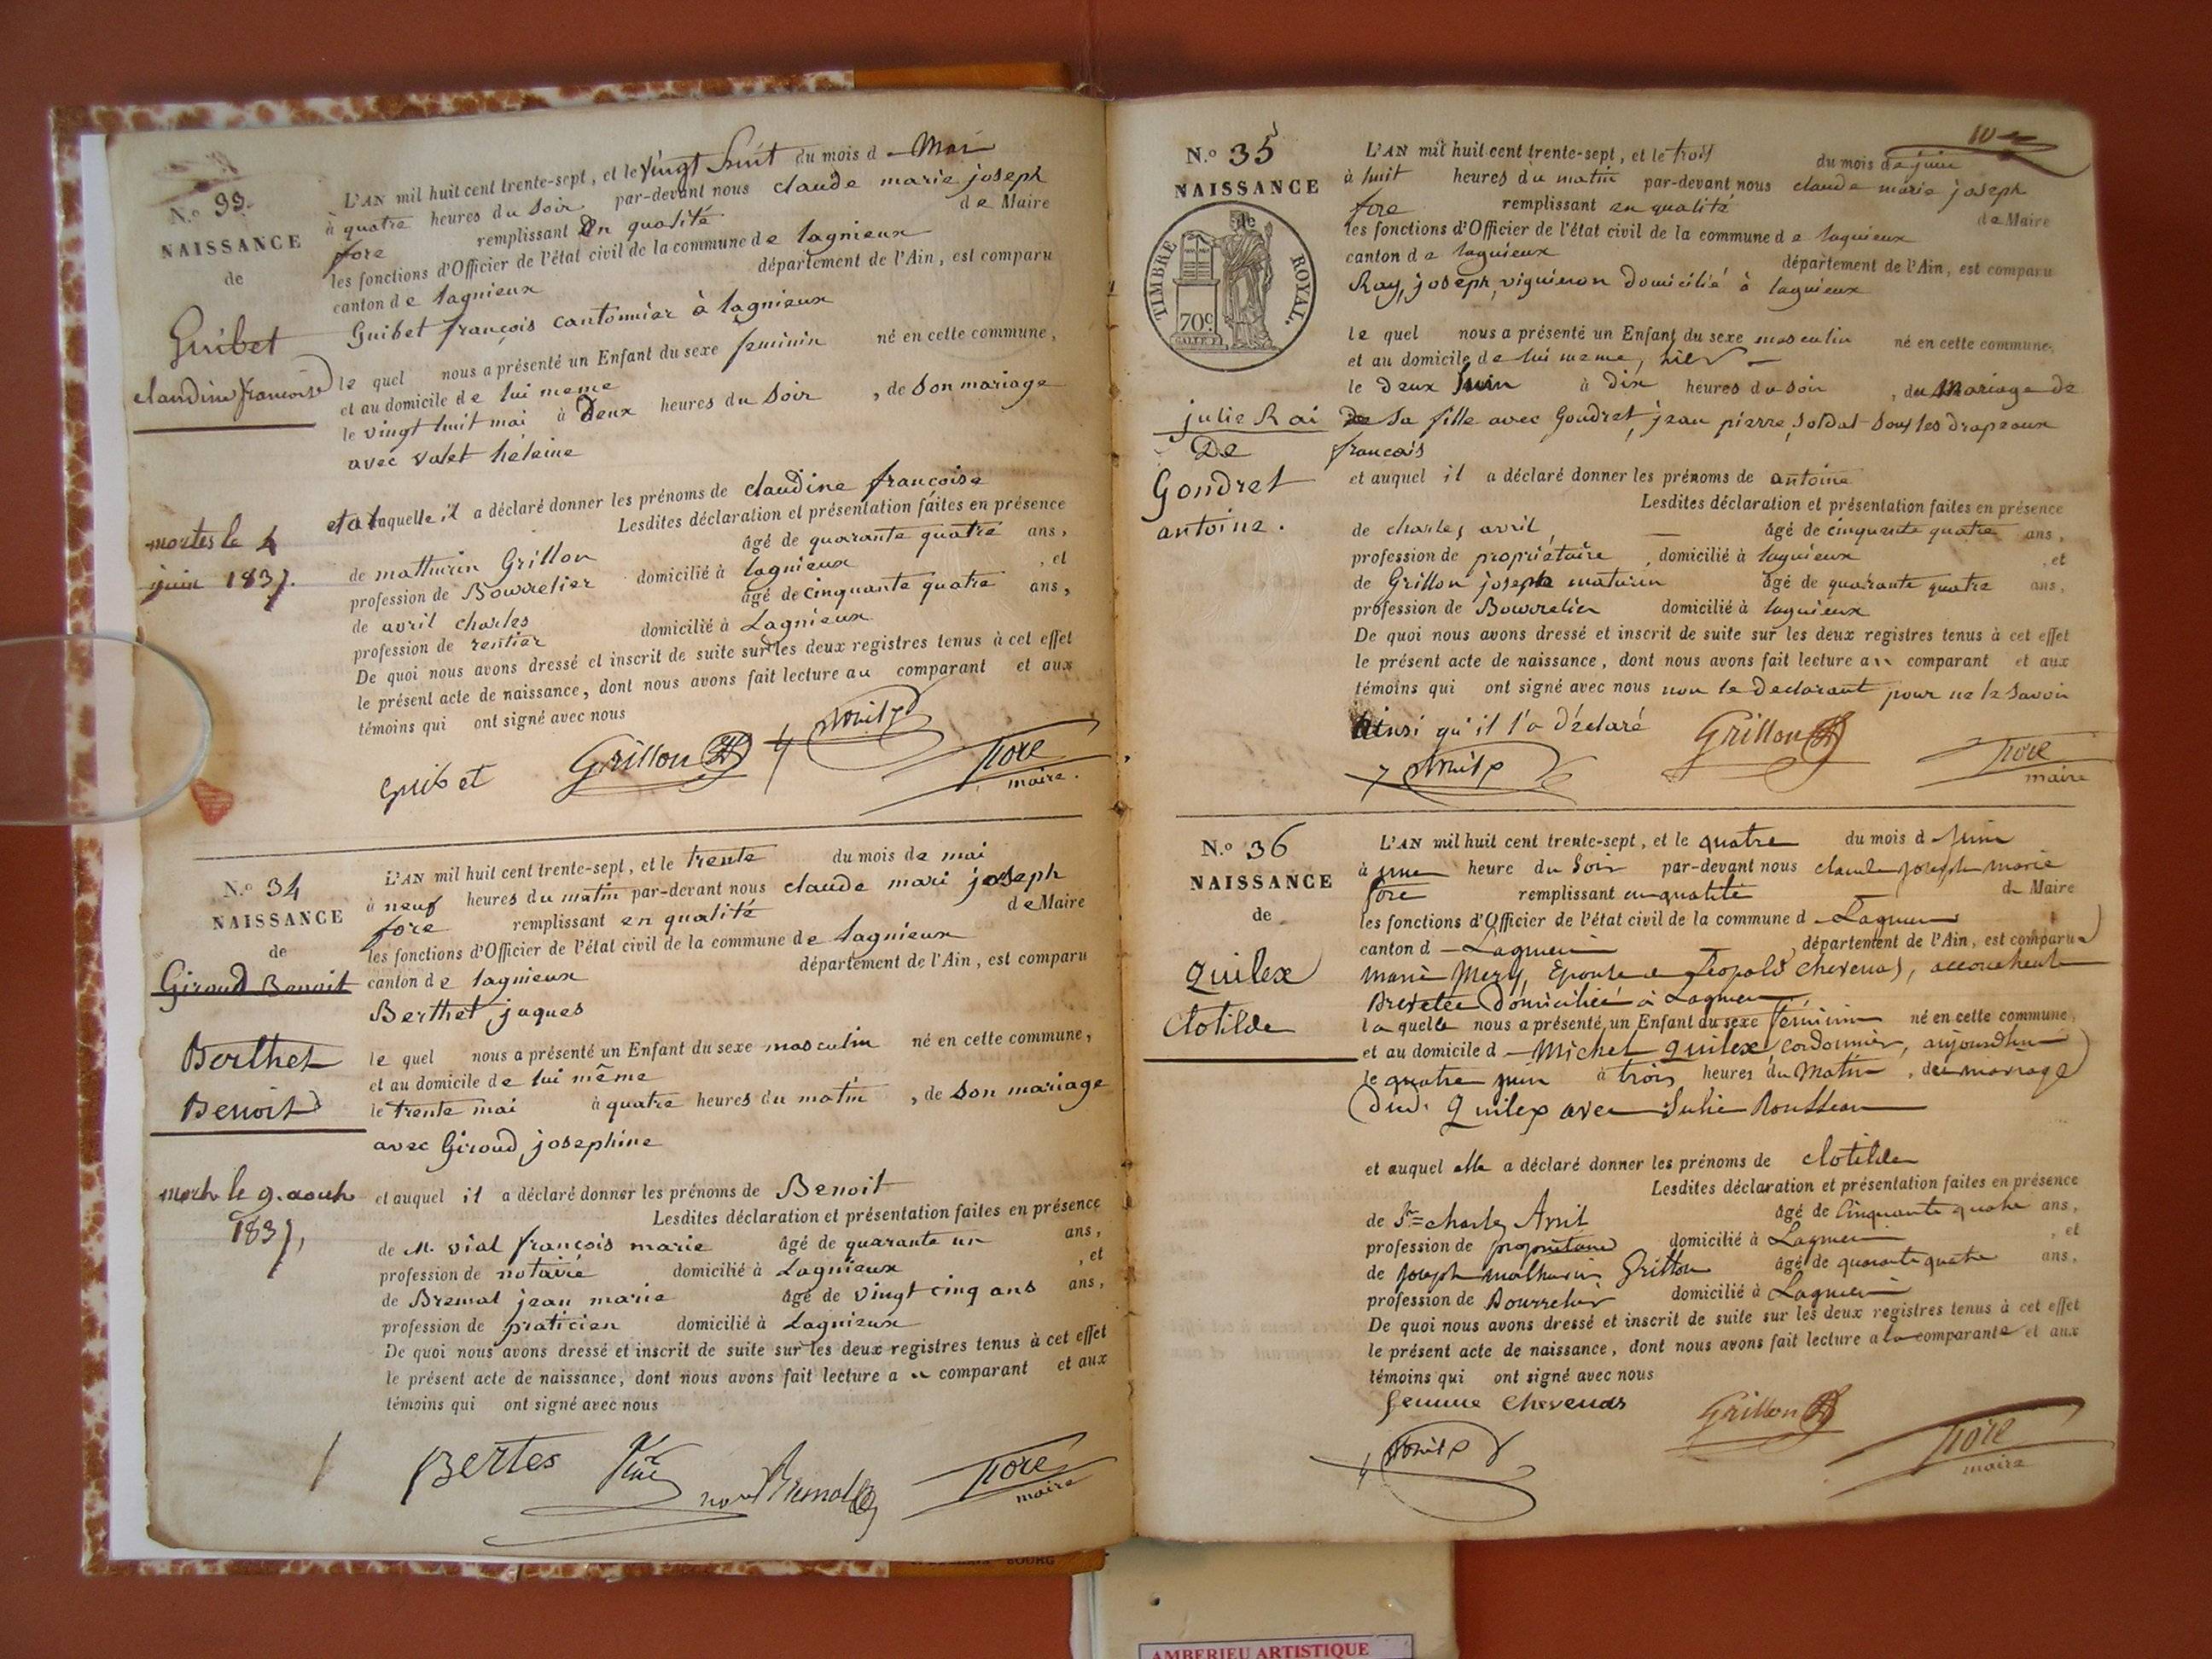 N.o 33.
NAISSANCE
de
Guibet
claudine françoise
mortes le 4
juin 1837.
L'AN mil huit cent trente-sept, et le vingt huit du mois d Mai
à quatre heures du soir par-devant nous claude marie joseph
fore remplissant en qualité de Maire
les fonctions d'Officier de l'état civil de la commune de lagnieux
canton de lagnieux département de l'Ain, est comparu
Guibet françois cantonnier à lagnieux
le quel nous a présenté un Enfant du sexe feminin né en cette commune,
et au domicile de lui meme
le vingt huit mai à Deux heures du soir, de son mariage
avec valet héleine
et a laquelle il a déclaré donner les prénoms de claudine françoise
Lesdites déclaration et présentation faites en présence
de mathurin Grillon âgé de quarante quatre ans,
profession de Bourrelier domicilié à lagnieux, et
de avril charles âgé de cinquante quatre ans,
profession de rentier domicilié à Lagnieux
De quoi nous avons dressé et inscrit de suite sur les deux registres tenus à cet effet
le présent acte de naissance, dont nous avons fait lecture au comparant et aux
témoins qui ont signé avec nous
Guibet Grillon fore
maire.
N.o 34
NAISSANCE
de
Giroud Benoit
Berthet
Benoit
mort le 9. août
1837,
L'AN mil huit cent trente-sept, et le trente du mois de mai
à neuf heures du matin par-devant nous claude mari joseph
fore remplissant en qualité de Maire
les fonctions d'Officier de l'état civil de la commune de lagnieux
canton de lagnieux département de l'Ain, est comparu
Berthet jaques
le quel nous a présenté un Enfant du sexe masculin né en cette commune,
et au domicile de lui même
le trente mai à quatre heures du matin, de son mariage
avec Giroud, josephine
et auquel il a déclaré donner les prénoms de Benoit
Lesdites déclaration et présentation faites en présence
de M. vial françois marie âgé de quarante un ans,
profession de notaire domicilié à Lagnieux, et
de Bremal jean marie âgé de vingt cinq ans ans,
profession de praticien domicilié à Lagnieux
De quoi nous avons dressé et inscrit de suite sur les deux registres tenus à cet effet
le présent acte de naissance, dont nous avons fait lecture au comparant et aux
témoins qui ont signé avec nous
Bertes fore
maire
N.o 35
NAISSANCE
de
TIMBRE ROYAL.
70c
julie Rai
De
Gondret
antoine.
L'AN mil huit cent trente-sept, et le trois du mois de juin
à huit heures du matin par-devant nous claude marie joseph
fore remplissant en qualité de Maire
les fonctions d'Officier de l'état civil de la commune de lagnieux
canton de lagnieux département de l'Ain, est comparu
Ray, joseph, vigneron domicilié à lagnieux
le quel nous a présenté un Enfant du sexe masculin né en cette commune,
et au domicile de lui meme, hier
le deux juin à dix heures du soir, du mariage de
de sa fille avec Gondret, jean pierre, soldat sous les drapeaux
francais
et auquel il a déclaré donner les prénoms de antoine
Lesdites déclaration et présentation faites en présence
de charles avril, âgé de cinquante quatre ans,
profession de propriétaire, domicilié à lagnieux, et
de Grillon joseph maturin âgé de quarante quatre ans,
profession de Bourrelier domicilié à lagnieux
De quoi nous avons dressé et inscrit de suite sur les deux registres tenus à cet effet
le présent acte de naissance, dont nous avons fait lecture au comparant et aux
témoins qui ont signé avec nous non le declarant pour ne le savoir
Ainsi qu'il l'a déclaré Grillon fore
maire
N.o 36
NAISSANCE
de
Quilex
Clotilde
L'AN mil huit cent trente-sept, et le quatre du mois d juin
à une heure du soir par-devant nous claude joseph marie
fore remplissant en qualité de Maire
les fonctions d'Officier de l'état civil de la commune d Lagnieu
canton d Lagnieu département de l'Ain, est comparue
Marie Mery, Epouse de Léopold Chevenas, accoucheuse
Brevetée domiciliée à Lagnieu
la quelle nous a présenté un Enfant du sexe féminin né en cette commune,
et au domicile d Michel Quilex, cordonnier, aujourdhui
le quatre juin à trois heures du Matin, du mariage
dud. Quilex avec Julie Rousseau
et auquel elle a déclaré donner les prénoms de Clotilde
Lesdites déclaration et présentation faites en présence
de Sr. charles Avril âgé de Cinquante quatre ans,
profession de propriétaire domicilié à Lagnieu, et
de Joseph mathurin Grillon âgé de quarante quatre ans,
profession de Bourrelier domicilié à Lagnieu
De quoi nous avons dressé et inscrit de suite sur les deux registres tenus à cet effet
le présent acte de naissance, dont nous avons fait lecture a la comparante et aux
témoins qui ont signé avec nous
femme Chevenas Grillon fore
maire
BOURG
AMBERIEU ARTISTIQUE